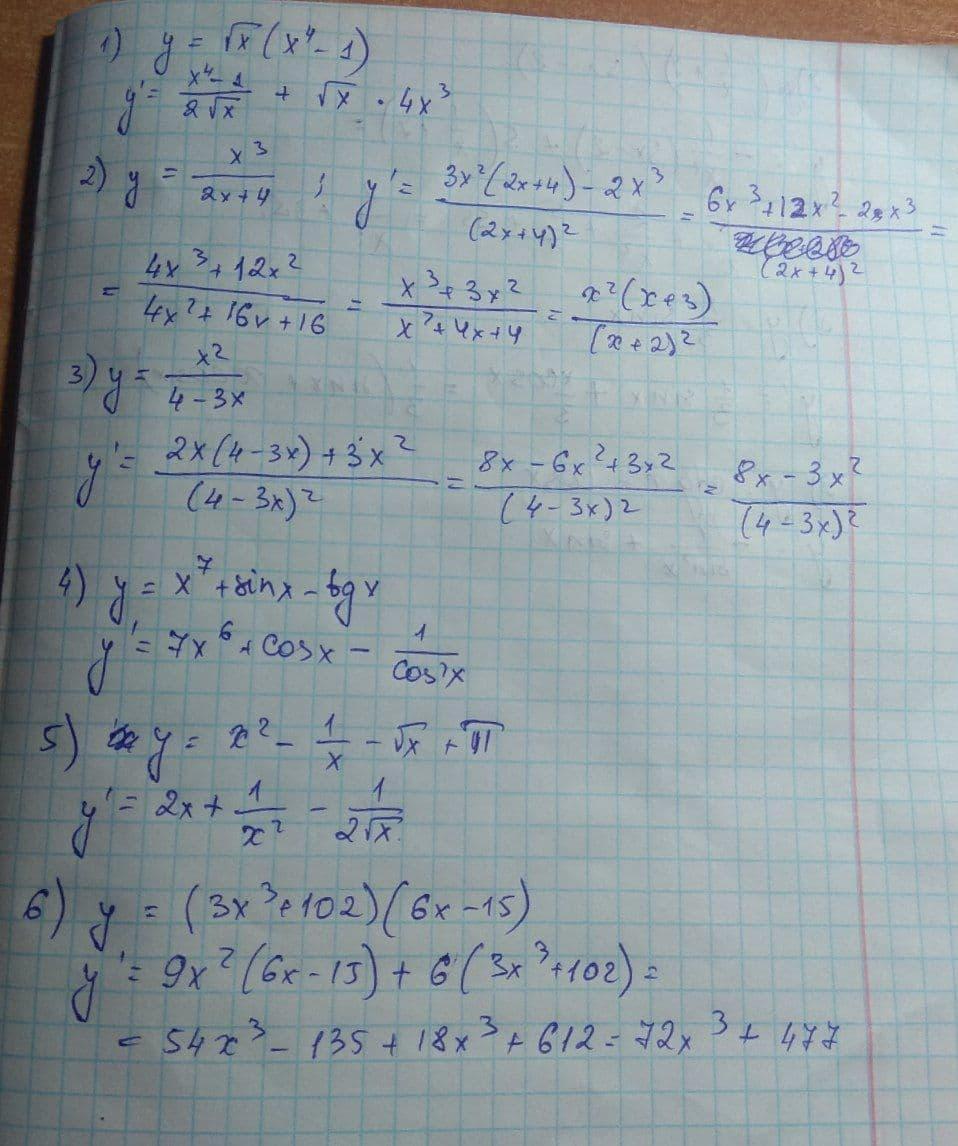 1) y = √x (x⁴ - 1)
y' = (x⁴ - 1)/(2√x) + √x · 4x³
2) y = x³/(2x+4) ; y' = (3x²(2x+4) - 2x³)/(2x+4)² = (6x³ + 12x² - 2x³)/(2x+4)² =
= (4x³ + 12x²)/(4x² + 16x + 16) = (x³ + 3x²)/(x² + 4x + 4) = x²(x+3)/(x+2)²
3) y = x²/(4 - 3x)
y' = (2x(4 - 3x) + 3x²)/(4 - 3x)² = (8x - 6x² + 3x²)/(4 - 3x)² = (8x - 3x²)/(4 - 3x)²
4) y = x⁷ + sinx - tgx
y' = 7x⁶ + cosx - 1/cos²x
5) y = x² - 1/x - √x + π
y' = 2x + 1/x² - 1/(2√x)
6) y = (3x³ + 102)(6x - 15)
y' = 9x²(6x - 15) + 6(3x³ + 102) =
= 54x³ - 135 + 18x³ + 612 = 72x³ + 477